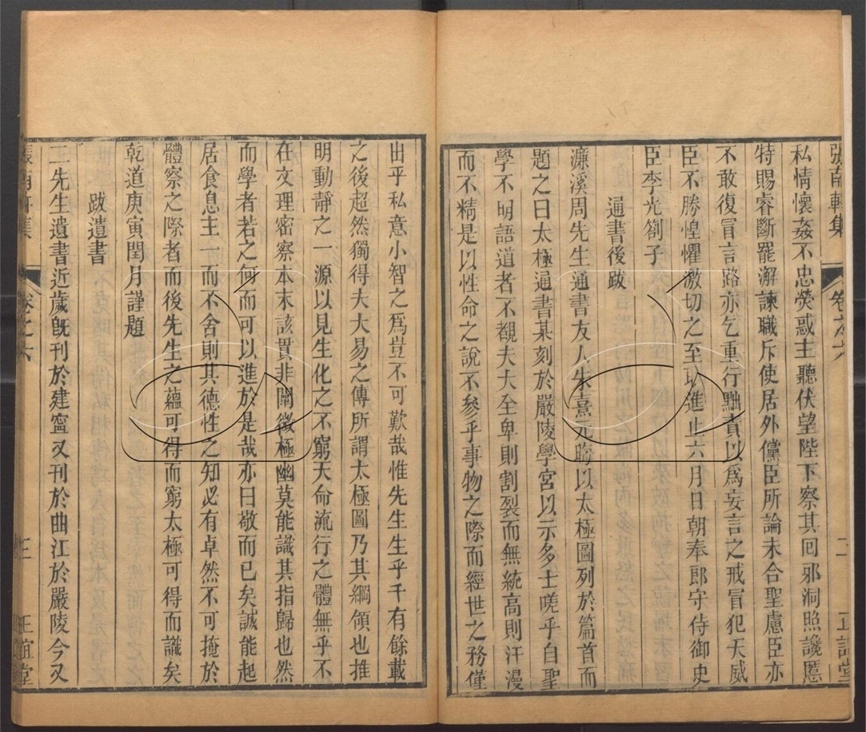 張南軒集 卷之六 二 正誼堂
私情懷姦不忠熒惑主聽伏望陛下察其回邪洞照讒慝
特賜睿斷罷澥諫職斥使居外儻臣所論未合聖慮臣亦
不敢復冒言路亦乞重行黜責以爲妄言之戒冒犯天威
臣不勝惶懼激切之至取進止六月日朝奉郎守侍御史
臣李光劄子
通書後跋
濂溪周先生通書友人朱熹元晦以太極圖列於篇首而
題之曰太極通書某刻於嚴陵學宮以示多士嗟乎自聖
學不明語道者不覩夫大全卑則割裂而無統高則汗漫
而不精是以性命之說不參乎事物之際而經世之務僅
出乎私意小智之爲豈不可歎哉惟先生生乎千有餘載
之後超然獨得夫大易之傳所謂太極圖乃其綱領也推
明動靜之一源以見生化之不窮天命流行之體無乎不
在文理密察本末該貫非闡微極幽莫能識其指歸也然
而學者若之何而可以進於是哉亦曰敬而已矣誠能起
居食息主一而不舍則其德性之知必有卓然不可掩於
體察之際者而後先生之蘊可得而窮太極可得而識矣
乾道庚寅閏月謹題
跋遺書
二先生遺書近歲旣刊於建寧又刊於曲江於嚴陵今又
張南軒集 卷之六 三 正誼堂